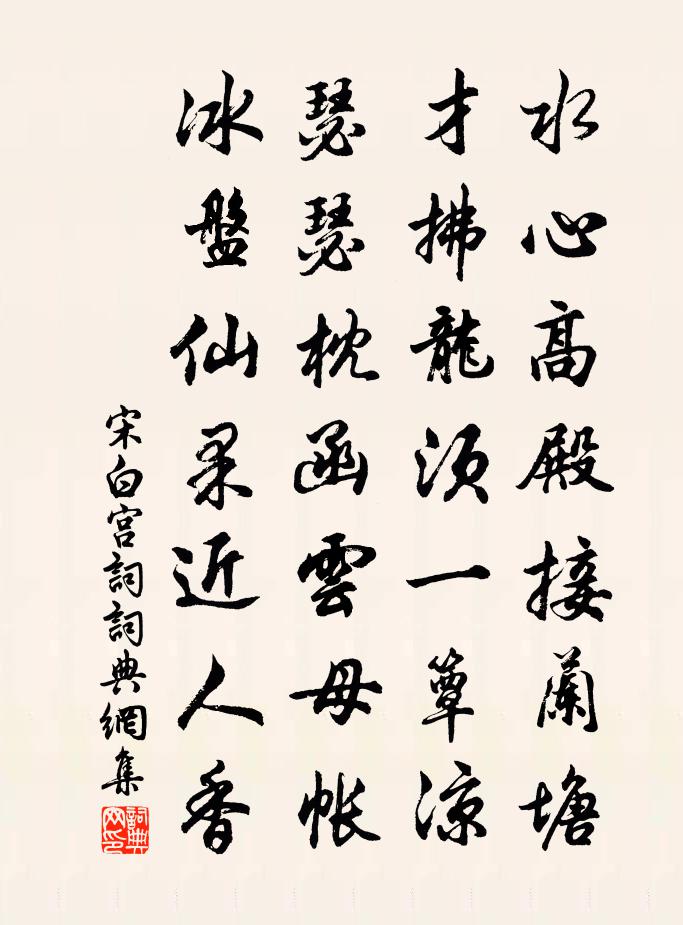 水心高殿接蘭塘
才拂龍須一簟涼
瑟瑟枕函雲母帳
冰盤仙果近人香
宋白宮詞詞典網集
詞典網印